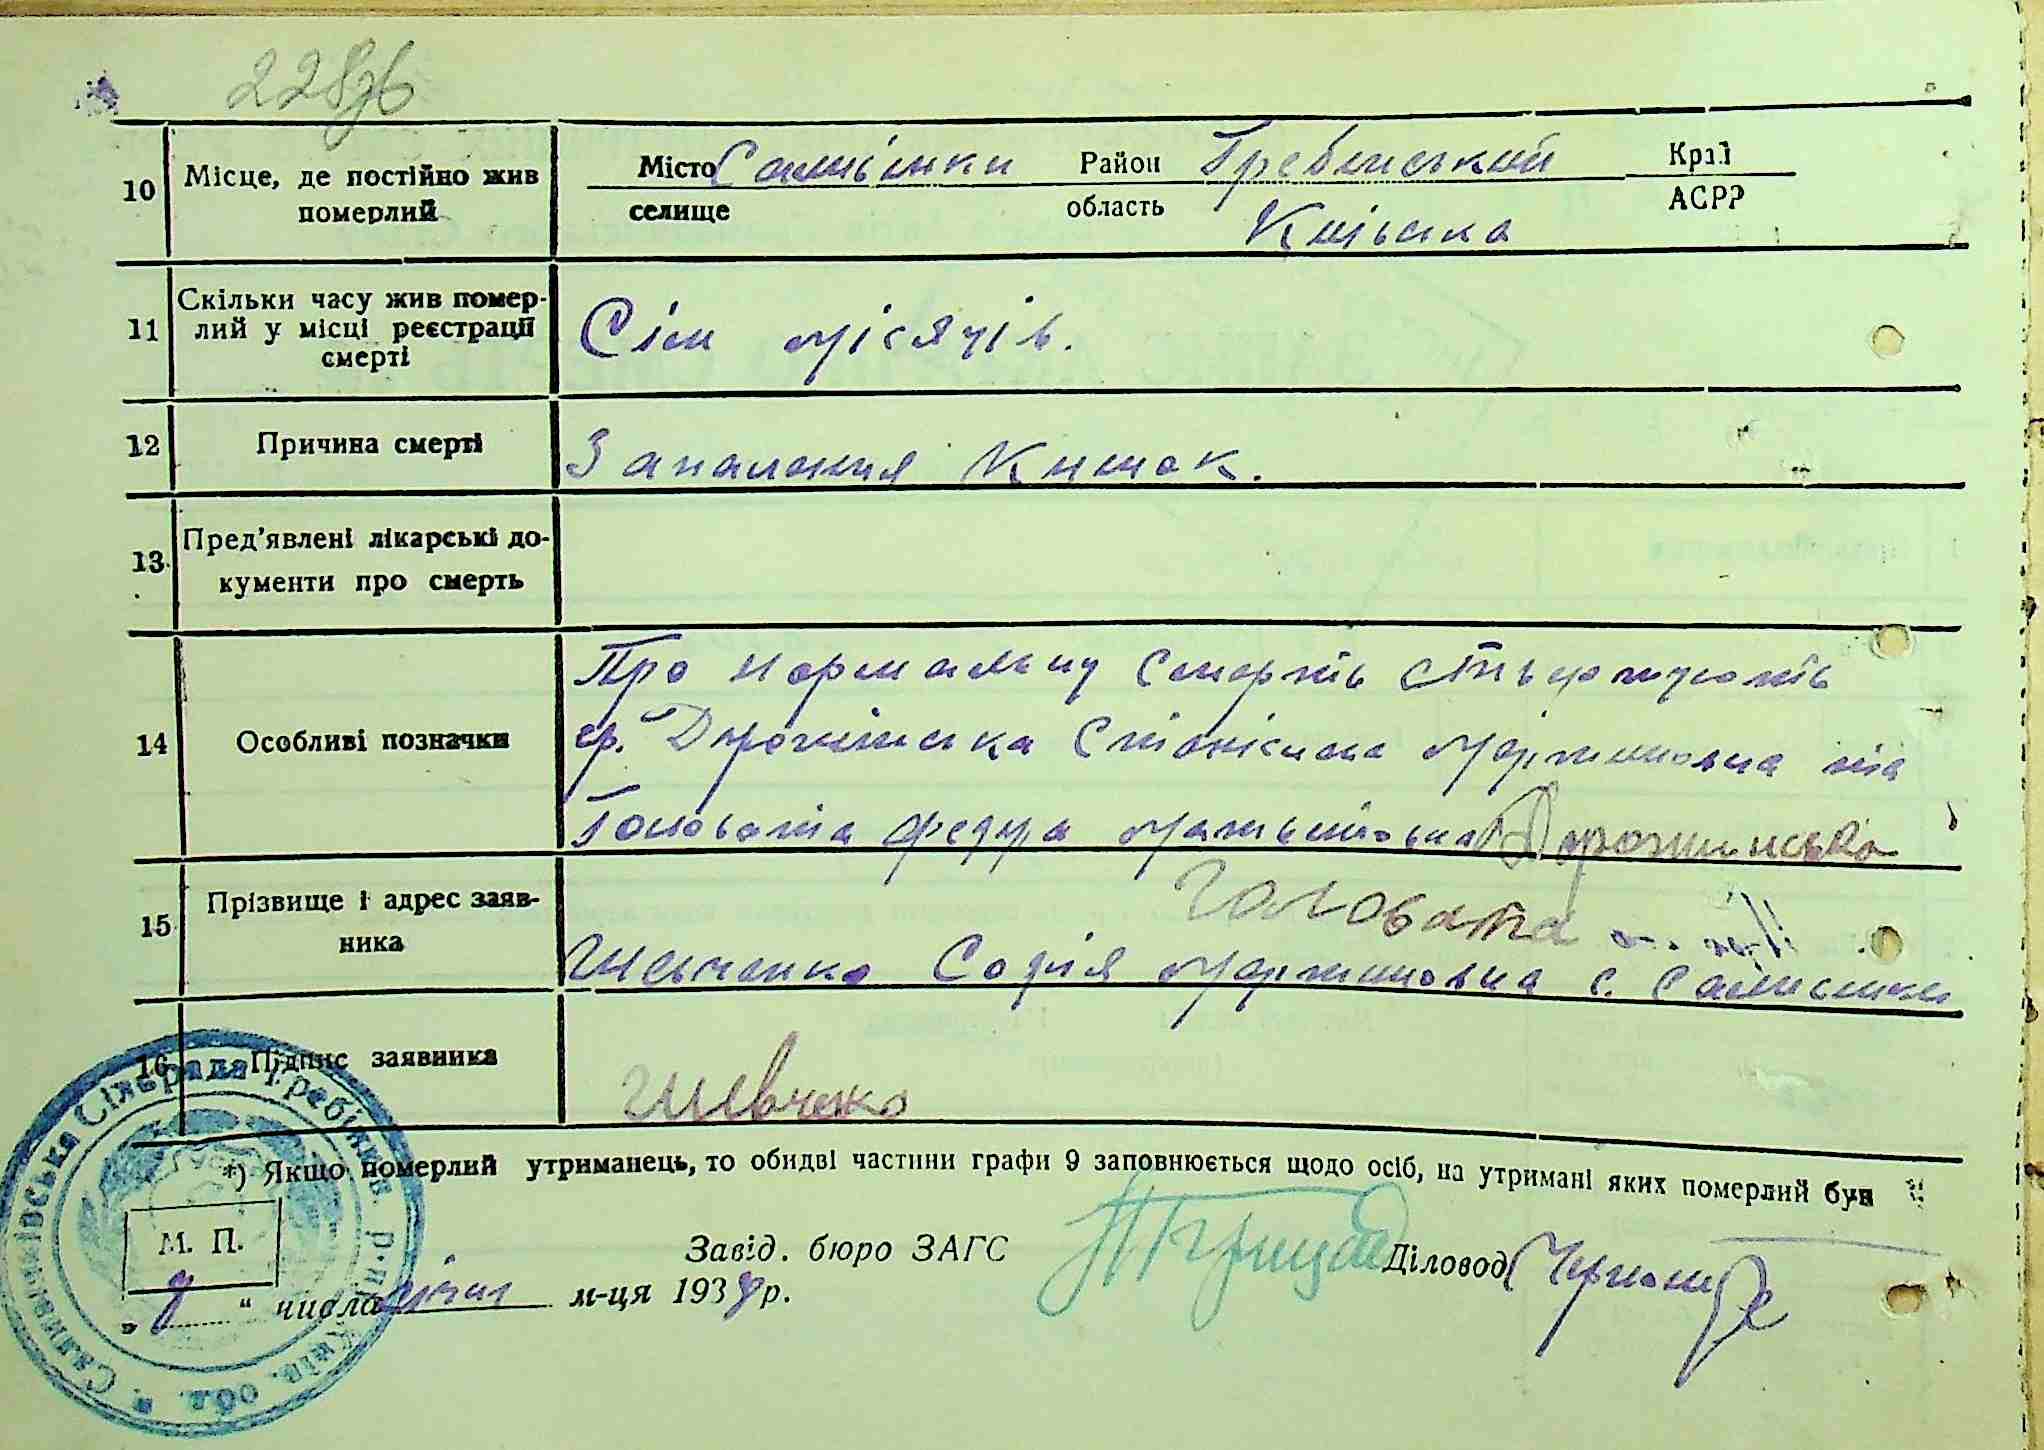 228
10 Місце, де постійно жив померлий
Місто Саливінки Район Гребінський Край
селище область Київська АСРР
11 Скільки часу жив помер-
лий у місці реєстрації
смерті
Сім місяців.
12 Причина смерті
Запалення Кишок.
13 Пред'явлені лікарські до-
кументи про смерть
14 Особливі позначки
Про нормальну смерть ствержують
гр. Мартиновна та
Головата Федора
15 Прізвище і адрес заяв-
ника
Головата
Шевченко Софія Мартиновна с. Саливінки
16 Підпис заявника
Шевчеко
*) Якщо померлий утриманець, то обидві частини графи 9 заповнюється щодо осіб, на утримані яких померлий був
М. П.
Завід. бюро ЗАГС
Діловод
„ “ числа січня м-ця 193 р.
Саливонківська Сільрада Гребінків. р-н Київ. обл.